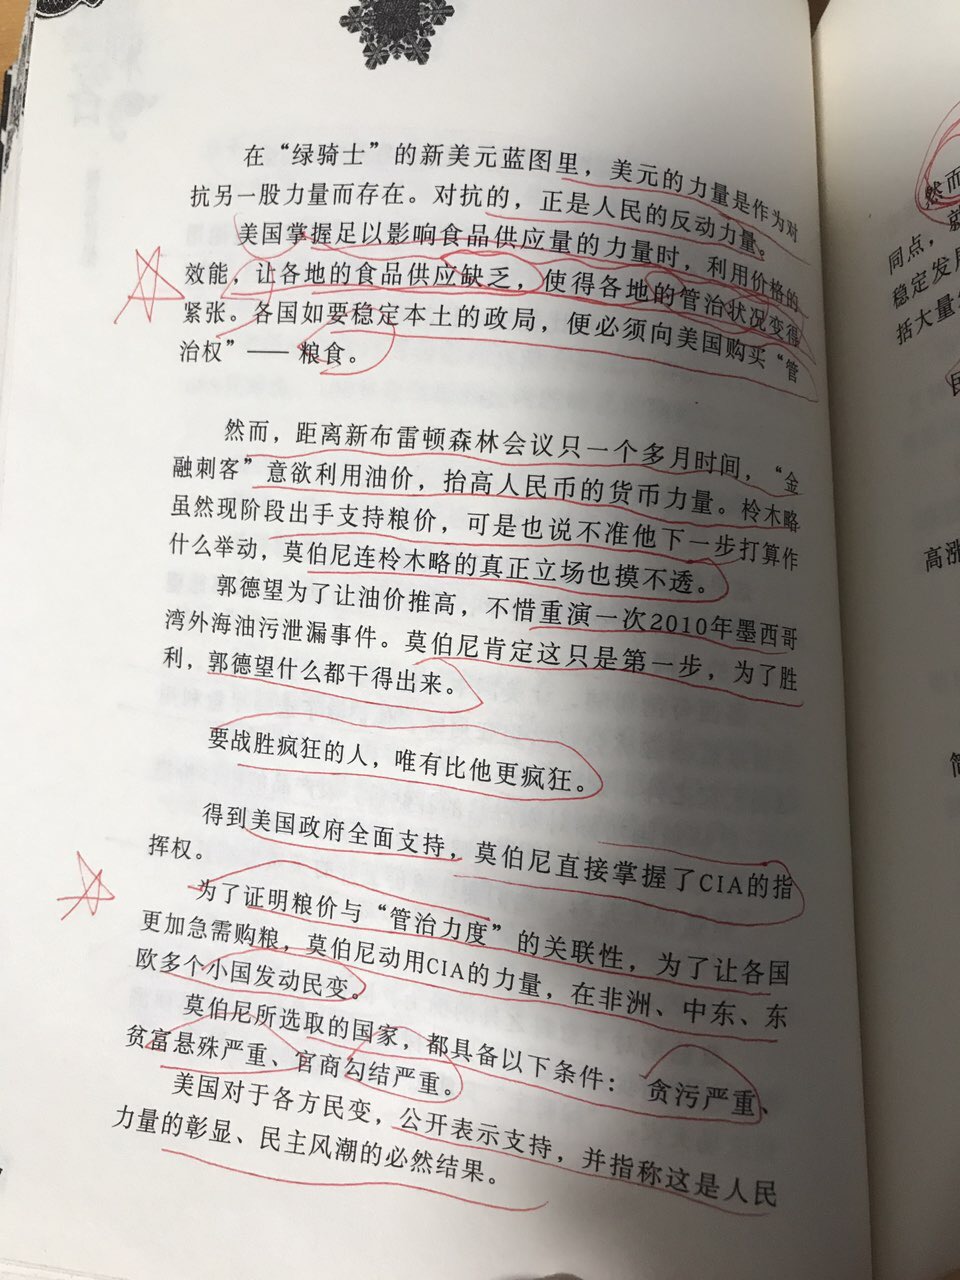 在“绿骑士”的新美元蓝图里，美元的力量是作为对
抗另一股力量而存在。对抗的，正是人民的反动力量。
美国掌握足以影响食品供应量的力量时，利用价格的
效能，让各地的食品供应缺乏，使得各地的管治状况变得
紧张。各国如要稳定本土的政局，便必须向美国购买“管
治权”——粮食。
然而，距离新布雷顿森林会议只一个多月时间，“金
融刺客”意欲利用油价，抬高人民币的货币力量。柃木略
虽然现阶段出手支持粮价，可是也说不准他下一步打算作
什么举动，莫伯尼连柃木略的真正立场也摸不透。
郭德望为了让油价推高，不惜重演一次2010年墨西哥
湾外海油污泄漏事件。莫伯尼肯定这只是第一步，为了胜
利，郭德望什么都干得出来。
要战胜疯狂的人，唯有比他更疯狂。
得到美国政府全面支持，莫伯尼直接掌握了CIA的指
挥权。
为了证明粮价与“管治力度”的关联性，为了让各国
更加急需购粮，莫伯尼动用CIA的力量，在非洲、中东、东
欧多个小国发动民变。
莫伯尼所选取的国家，都具备以下条件：贪污严重、
贫富悬殊严重、官商勾结严重。
美国对于各方民变，公开表示支持，并指称这是人民
力量的彰显、民主风潮的必然结果。
然而
同点，就
稳定发展
括大量
民
高涨
简